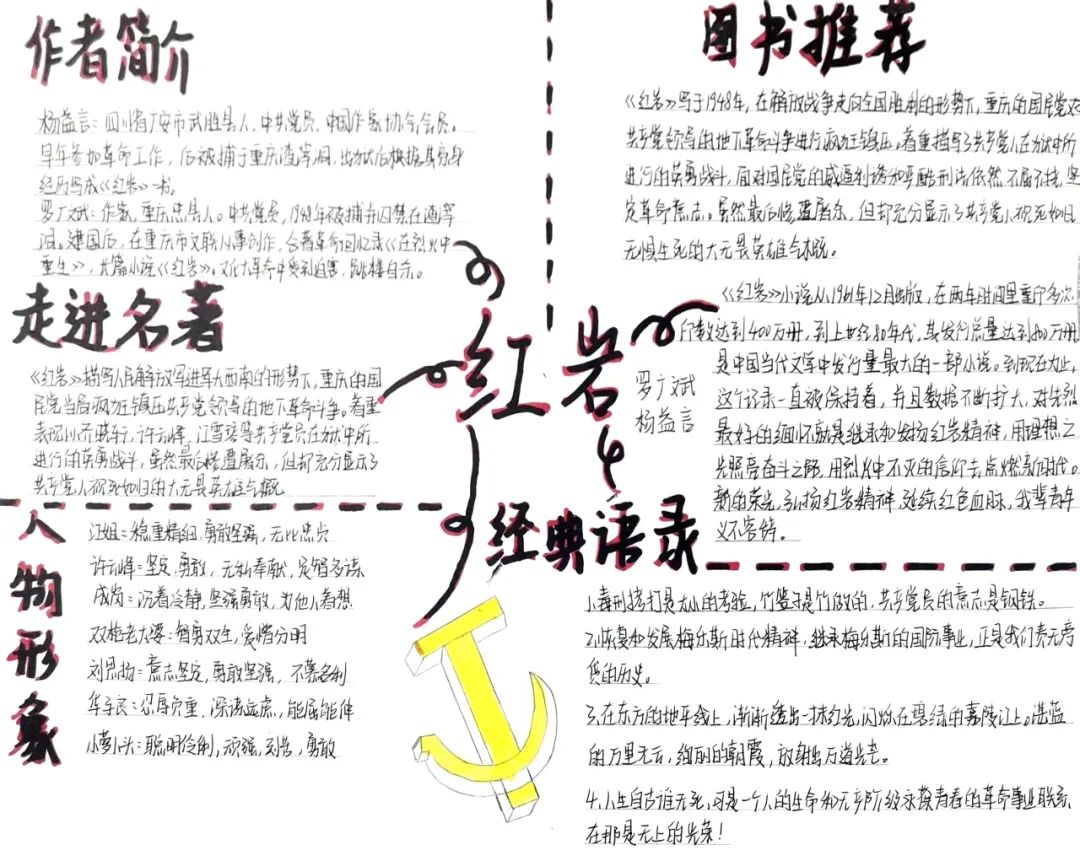 作者简介
杨益言：四川省广安市武胜县人，中共党员，中国作家协会会员。
早年参加革命工作，后被捕于重庆渣滓洞，出狱后根据其亲身
经历写成《红岩》一书。
罗广斌：作家，重庆忠县人。中共党员，1948年被捕并囚禁在渣滓
洞。建国后，在重庆市文联从事创作，合著革命回忆录《在烈火中
重生》，长篇小说《红岩》。文化大革命中受到迫害，跳楼自杀。
走进名著
《红岩》描写人民解放军进军大西南的形势下，重庆的国
民党当局疯狂镇压共产党领导的地下革命斗争。着重
表现以齐晓轩，许云峰，江雪琴等共产党员在狱中所
进行的英勇战斗，虽然最后惨遭屠杀，但却充分显示了
共产党人视死如归的大无畏英雄气概
人物形象
江姐：稳重精细，勇敢坚强，无比忠贞
许云峰：坚定，勇敢，无私奉献，足智多谋
成岗：沉着冷静，坚强勇敢，为他人着想
双枪老太婆：智勇双全，爱憎分明
刘思扬：意志坚定，勇敢坚强，不慕名利
华子良：忍辱负重，深谋远虑，能屈能伸
小萝卜头：聪明伶俐，顽强，刻苦，勇敢
红岩
罗广斌
杨益言
图书推荐
《红岩》写于1948年，在解放战争走向全国胜利的形势下，重庆的国民党对
共产党领导的地下革命斗争进行疯狂镇压。着重描写了共产党人在狱中所
进行的英勇战斗，面对国民党的威逼利诱和严酷刑法依然不屈不挠，坚
定革命意志。虽然最后惨遭屠杀，但却充分显示了共产党人视死如归，
无惧生死的大无畏英雄气概。
《红岩》小说从1961年12月出版，在两年时间里重印多次，
印数达到400万册，到上世纪80年代，其发行总量达到800万册
是中国当代文学中发行量最大的一部小说。到现在为止，
这个记录一直被保持着，并且数据不断扩大，对先烈
最好的缅怀就是继承和发扬红岩精神，用理想之
光照亮奋斗之路，用烈火中不灭的信仰去点燃新时代。
新的荣光，弘扬红岩精神，延续红色血脉，我辈青年
义不容辞。
经典语录
1.毒刑拷打是太小的考验，竹签子是竹做的，共产党员的意志是钢铁。
2.恢复和发展梅尔斯时代精神，继承梅尔斯的国际事业，正是我们责无旁
贷的历史。
3.在东方的地平线上，渐渐透出一抹红光，闪烁在碧绿的嘉陵江上。湛蓝
的万里无云，绚丽的朝霞，放射出万道光芒。
4.人生自古谁无死，可是一个人的生命和无产阶级永葆青春的革命事业联系
在那是无上的光荣！